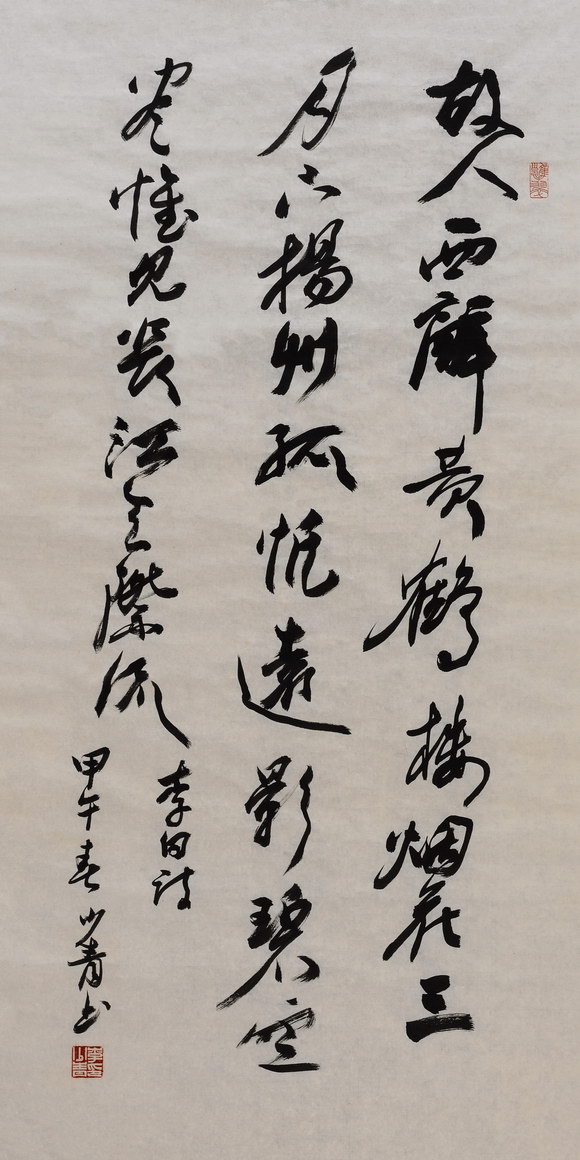 故人西辭黄鶴楼烟花三
月下揚州孤帆遠影碧空
尽惟見長江天際流
李白诗
甲午春少青书